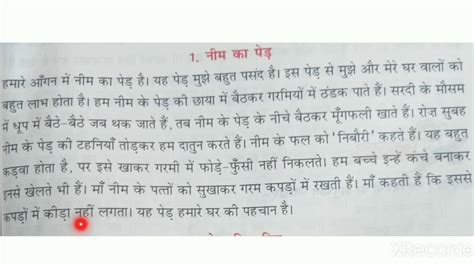 1. नीम का पेड़
हमारे आँगन में नीम का पेड़ है। यह पेड़ मुझे बहुत पसंद है। इस पेड़ से मुझे और मेरे घर वालों को
बहुत लाभ होता है। हम नीम के पेड़ की छाया में बैठकर गरमियों में ठंडक पाते हैं। सरदी के मौसम
में धूप में बैठे-बैठे जब थक जाते हैं, तब नीम के पेड़ के नीचे बैठकर मूँगफली खाते हैं। रोज़ सुबह
नीम के पेड़ की टहनियाँ तोड़कर हम दातुन करते हैं। नीम के फल को 'निबौरी' कहते हैं। यह बहुत
कड़वा होता है, पर इसे खाकर गरमी में फोड़े-फुँसी नहीं निकलते। हम बच्चे इन्हें कंचे बनाकर
इनसे खेलते भी हैं। माँ नीम के पत्तों को सुखाकर गरम कपड़ों में रखती हैं। माँ कहती हैं कि इससे
कपड़ों में कीड़ा नहीं लगता। यह पेड़ हमारे घर की पहचान है।
XRecorder